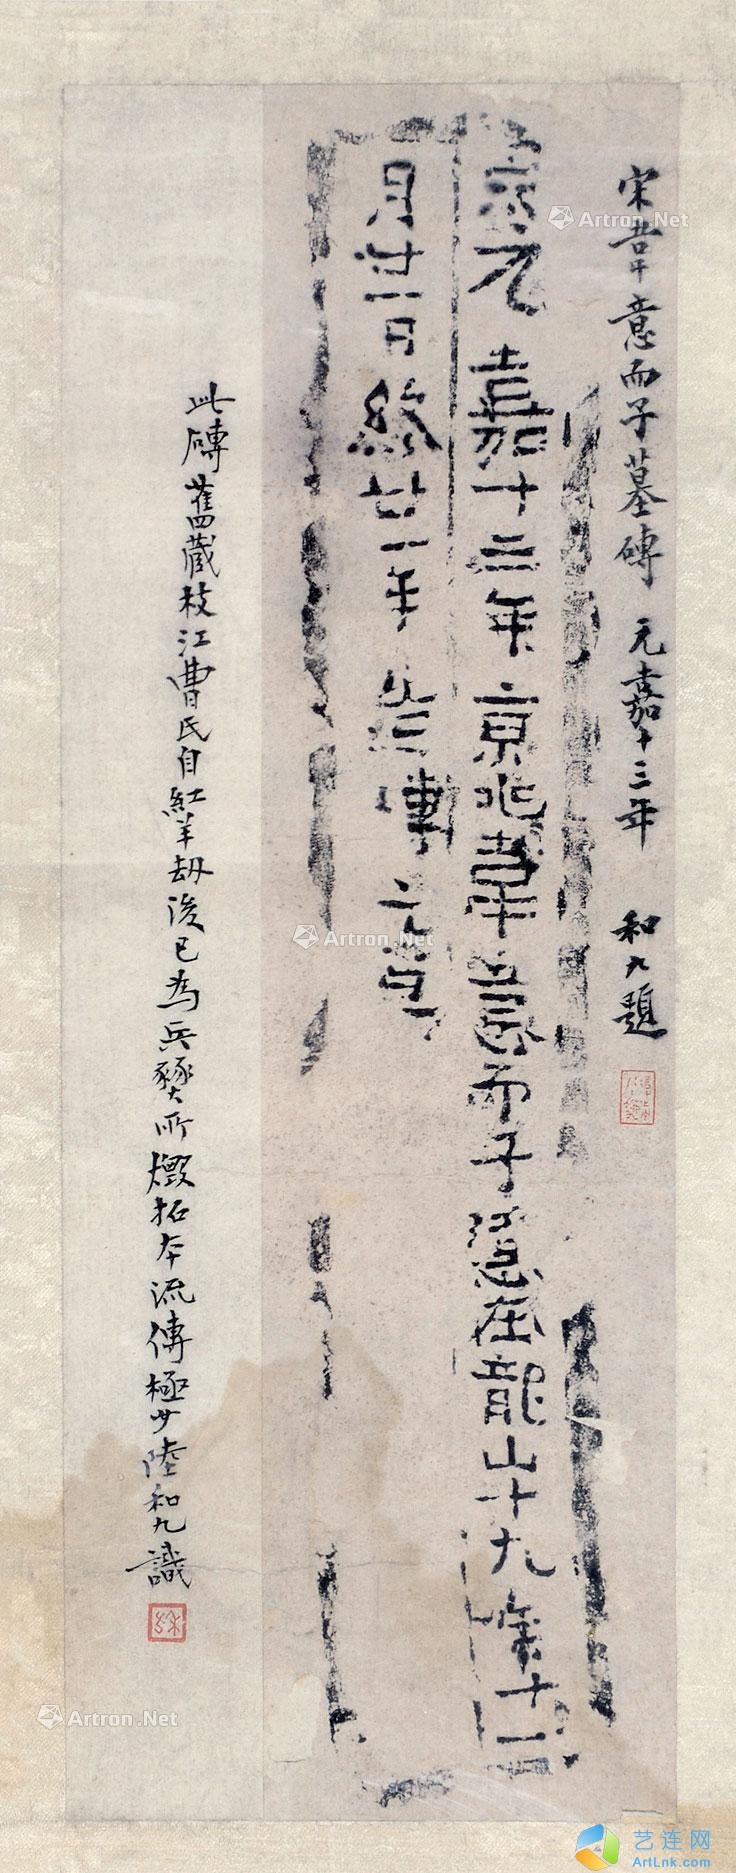 宋韋意而子墓磚 元嘉十三年 和九題
宋元嘉十三年京兆韋意而子
在龍山十九十二
月廿一日終廿一年造塼二
此磚舊藏枝江曹氏自紅羊劫後已為兵燹所燬拓本流傳極少陸和九識
Artron.Net
Artron.Net
Artron.Net
艺连网
ArtLnk.com